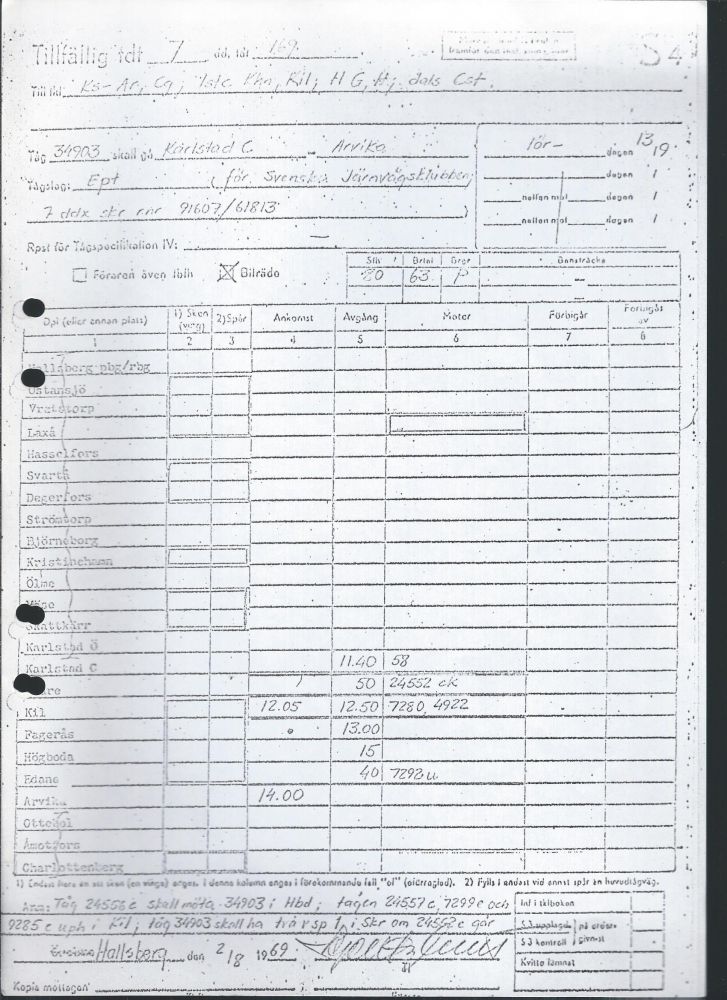 Tillfällig tdt 7 dd, tdt 169
framför
S 4
Till
Ks-Ar, Cg, Kil, H G,
Tåg 34903 skall gå Karlstad C - Arvika
lör- dagen 13/9
Tågslag: Ept (för Svenska Järnvägsklubben
dagen /
mellan mot dagen /
7 ddx skr rnr 91607/61813 )
mellan mot dagen /
Rpst för Tågspecifikation IV:
Sth Brtal Brgr Bansträcka
80 63 P -
Föraren även tbfh Biträde
Dpl (eller annan plats) 1) Sken (ving) 2) Spår Ankomst Avgång Möter Förbigår Förbigås av
1 2 3 4 5 6 7 8
Hallsberg pbg/rbg
Östansjö
Vretstorp
Laxå
Hasselfors
Svartå
Degerfors
Strömtorp
Björneborg
Kristinehamn
Ölme
Väse
Skattkärr
Karlstad Ö
Karlstad C 11.40 58
50 24552 ck
Kil 12.05 12.50 7280, 4922
Fagerås 13.00
Högboda 15
Edane 40 7292 u
Arvika 14.00
Ottebol
Åmotfors
Charlottenberg
1) Endast flera än ett sken (en vinge) anges. I denna kolumn anges i förekommande fall "ol" (oförreglad). 2) Fylls i endast vid annat spår än huvudtågväg.
Anm: Tåg 24556 c skall möta 34903 i Hbd; tågen 24557 c, 7299 c och
Inf i tklboken
9285 c uph i Kil; tåg 34903 skall ha tkv sp 1 i Skr om 24552 c går
S 3 upplagd på order
S 3 kontroll givnast
Hallsberg den 2/8 1969
Kvitto lämnat
Kopia mottagen